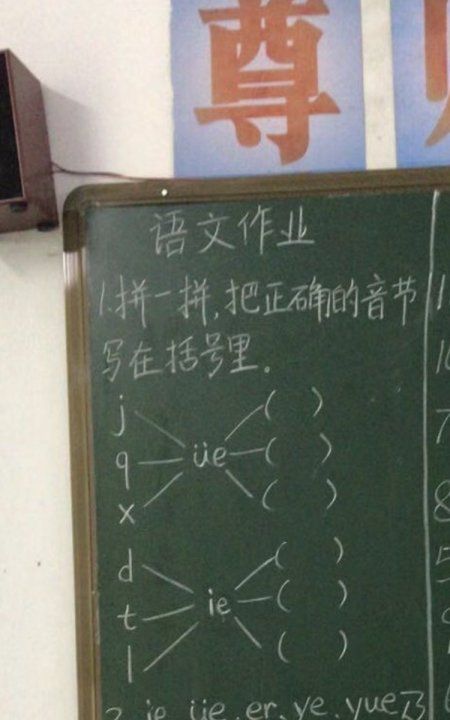 尊
语文作业
1.拼一拼,把正确的音节
写在括号里.
j
q üe ( ) ( ) ( )
x
d
t ie ( ) ( ) ( )
l
2. ie üe er ye yue